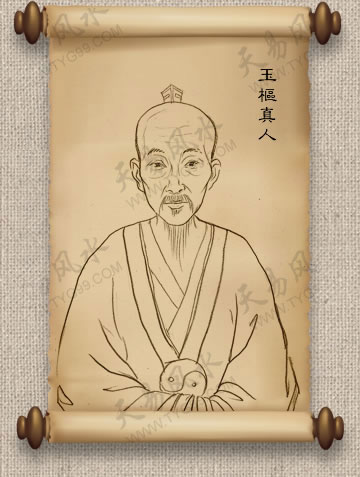 玉樞真人
天易风水
WWW.TYG99.COM
天易风水
WWW.TYG99.COM
天易风水
WWW.TYG99.COM
天易风水
WWW.TYG99.COM
天易风水
WWW.TYG99.COM